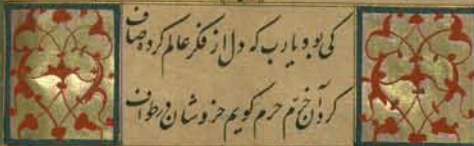 کی بود یارب که دل از فکر عالم کرده صاف
کرد آن خرم حرم کویم خروشان در طواف